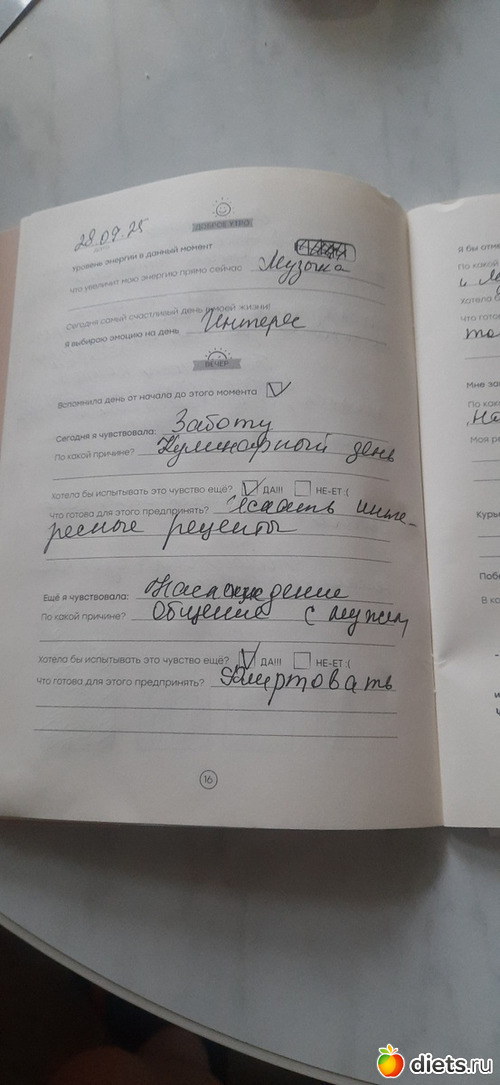 28.09.25
дата
ДОБРОЕ УТРО
Уровень энергии в данный момент
Что увеличит мою энергию прямо сейчас Музыка
Сегодня самый счастливый день в моей жизни!
Я выбираю эмоцию на день Интерес
ВЕЧЕР
Вспомнила день от начала до этого момента
Сегодня я чувствовала: Заботу
По какой причине? Кулинарный день
Хотела бы испытывать это чувство ещё? ДА!!! НЕ-ЕТ :(
Что готова для этого предпринять? Искать инте-
ресные рецепты
Ещё я чувствовала: Наслаждение
По какой причине? Общение с мужем
Хотела бы испытывать это чувство ещё? ДА!!! НЕ-ЕТ :(
Что готова для этого предпринять? Флиртовать
16
Я бы отм
По какой
Хотела б
Что гото
Мне за
По как
На
Моя ре
Курь
Побе
В ка
diets.ru